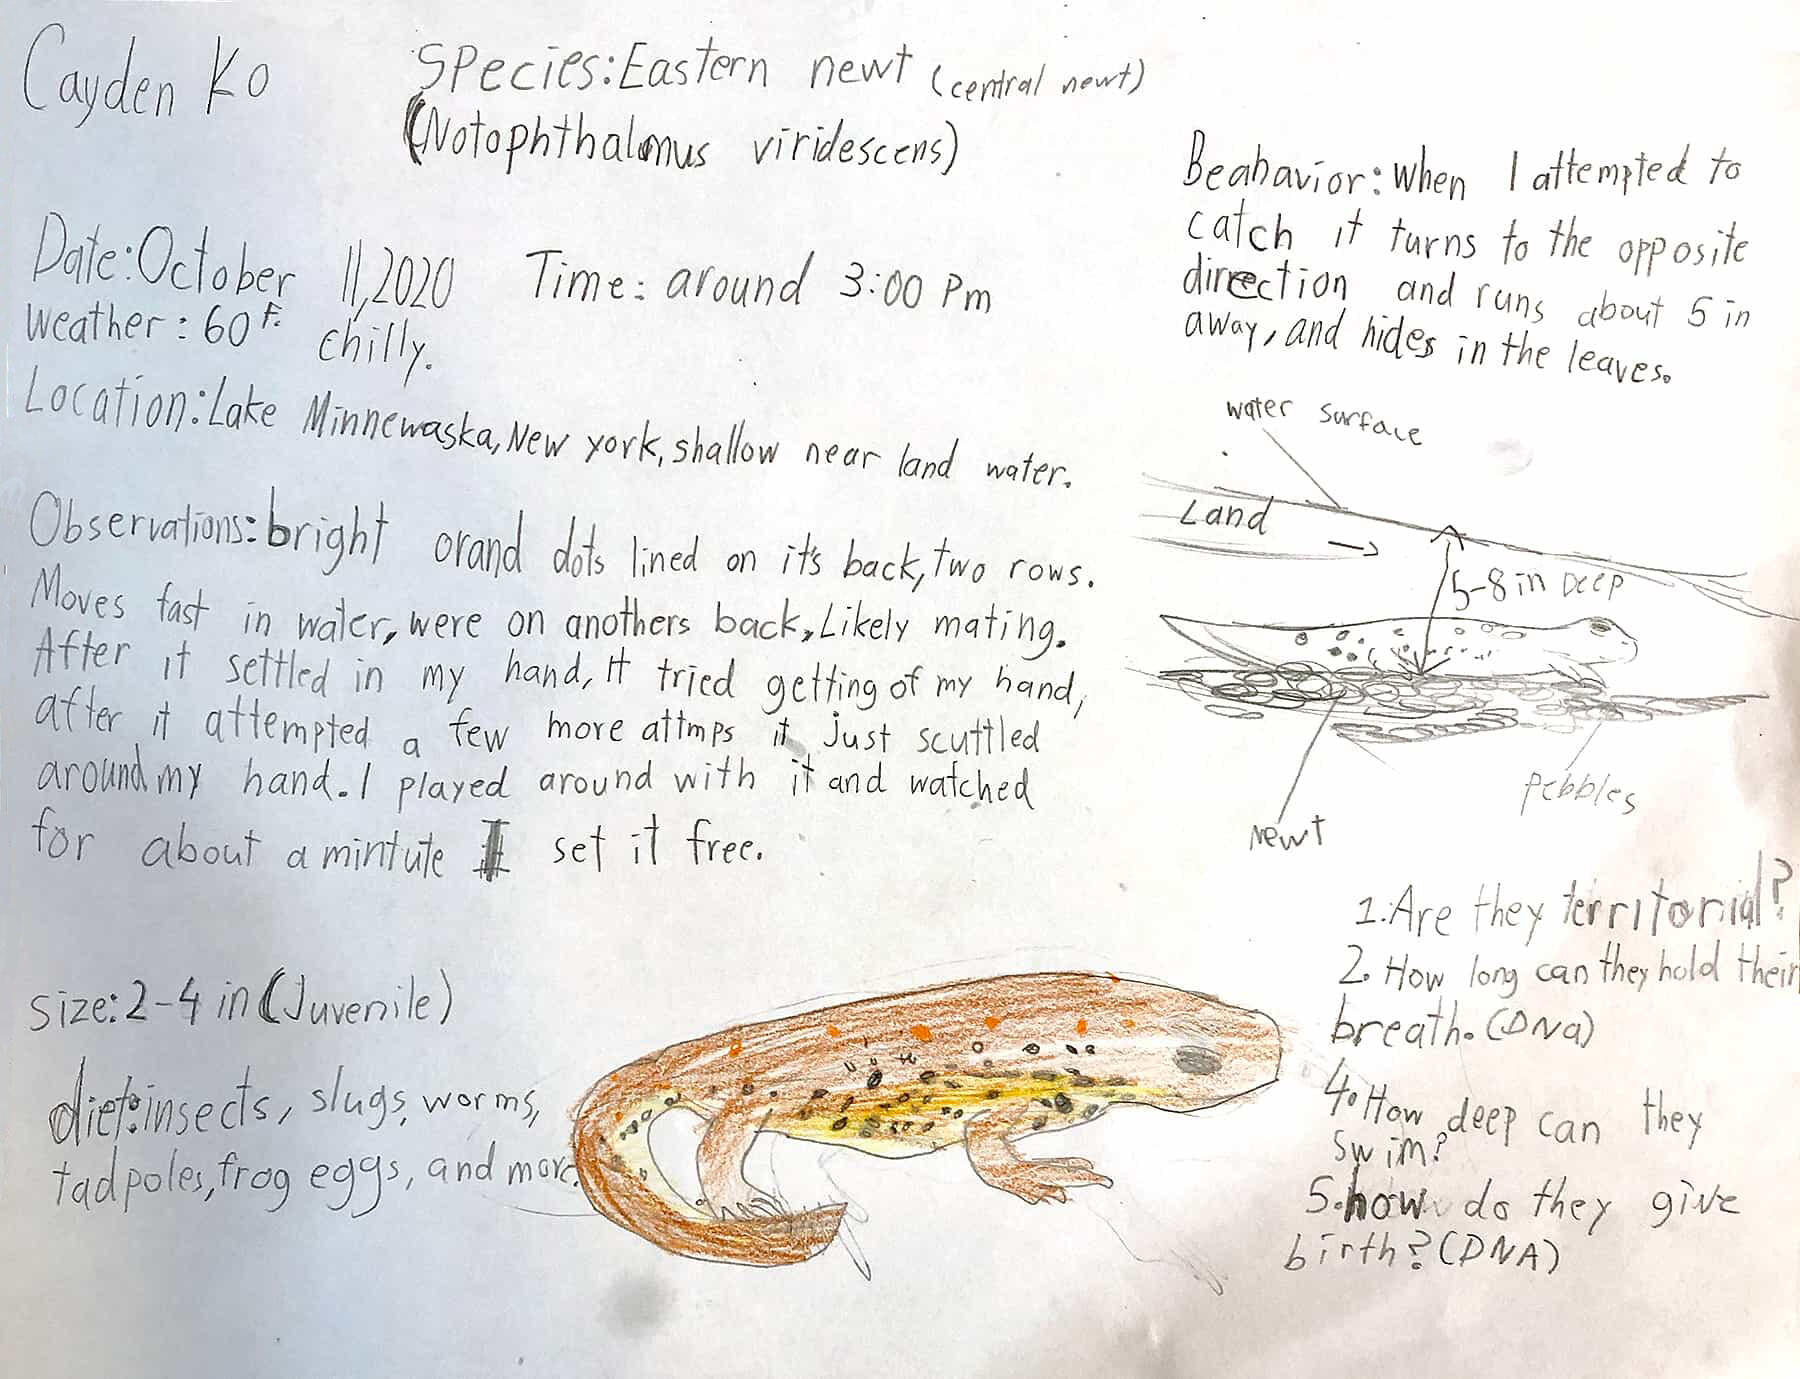 Cayden Ko
Species: Eastern newt (central newt)
(Notophthalmus viridescens)
Date: October 11, 2020 Time: around 3:00 Pm
Weather: 60 F. chilly.
Location: Lake Minnewaska, New york, shallow near land water.
Observations: bright orand dots lined on it's back, two rows.
Moves fast in water, were on anothers back, Likely mating.
After it settled in my hand, It tried getting of my hand,
after it attempted a few more attmps it just scuttled
around my hand. I played around with it and watched
for about a mintute I set it free.
Size: 2-4 in (Juvenile)
diet: insects, slugs, worms,
tadpoles, frog eggs, and more.
Beahavior: When I attempted to
catch it turns to the opposite
direction and runs about 5 in
away, and hides in the leaves.
water surface
Land
5-8 in Deep
newt
pebbles
1. Are they territorial?
2. How long can they hold their
breath. (DNa)
4. How deep can they
swim?
5. how do they give
birth? (DNA)